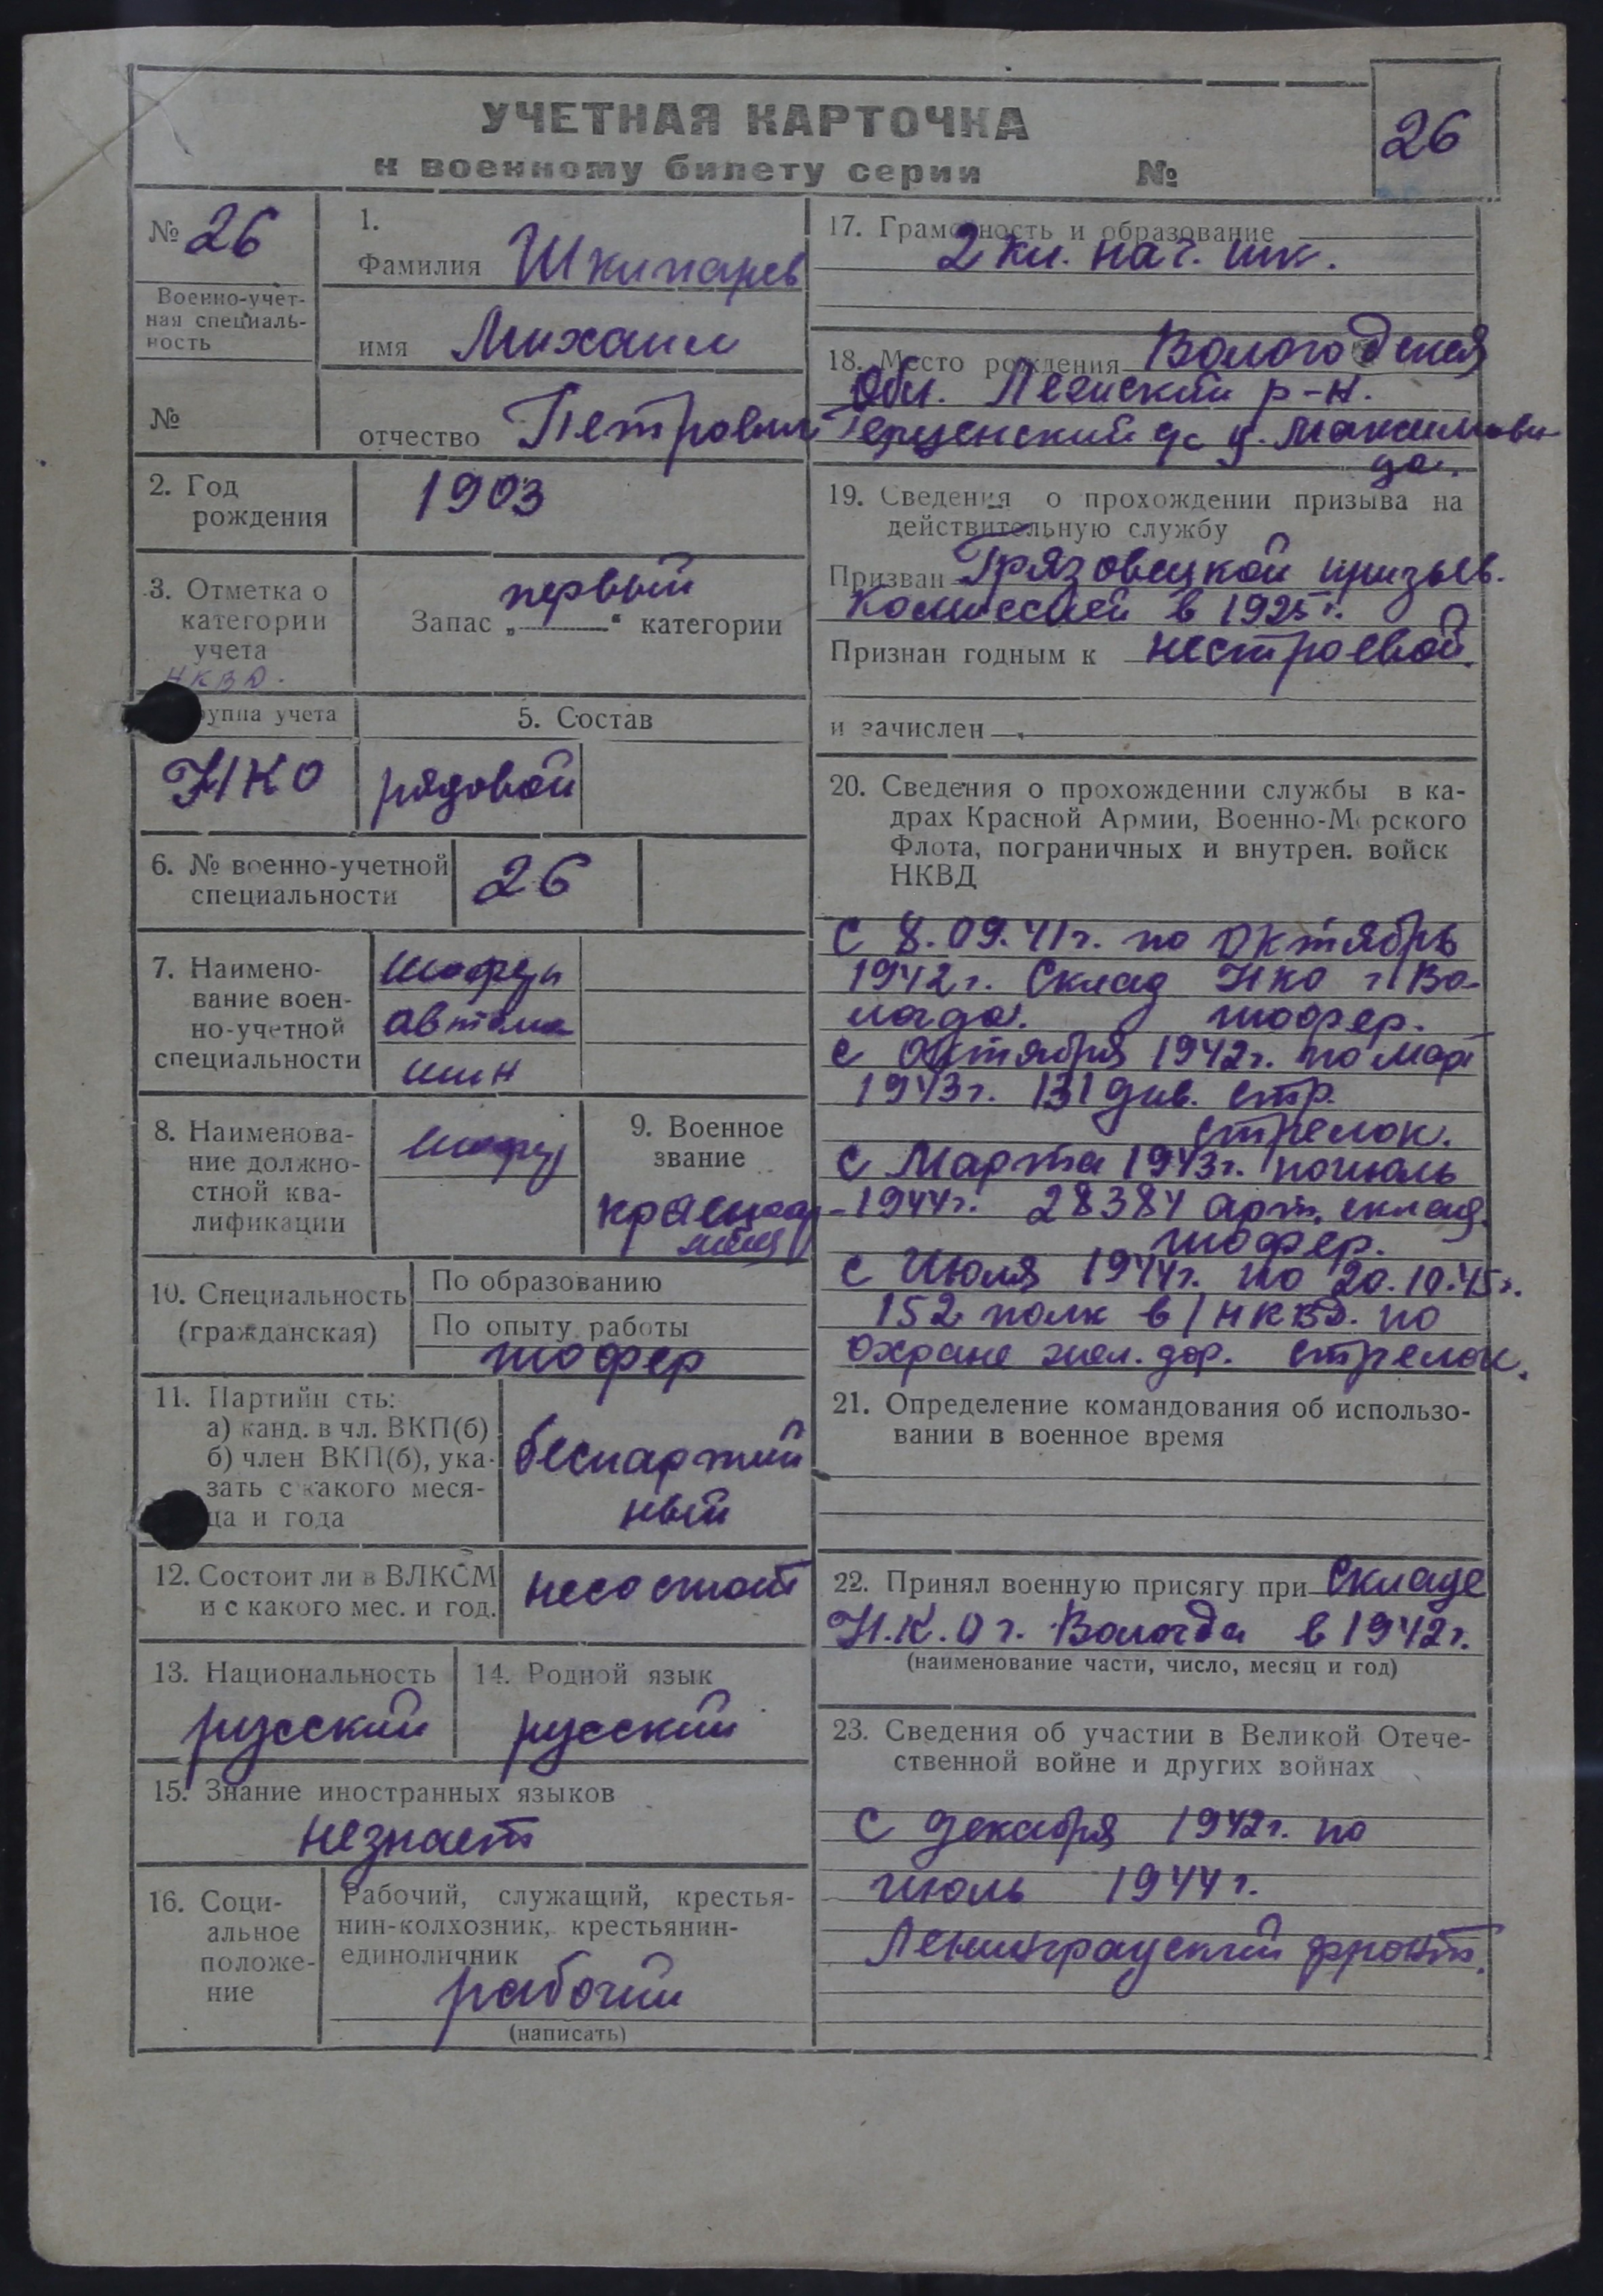 УЧЕТНАЯ КАРТОЧКА
к военному билету серии №
26
№ 26
Военно-учет-
ная специаль-
ность
№
1.
Фамилия Шкипарев
имя Михаил
отчество Петрович
2. Год
рождения
1903
3. Отметка о
категории
учета
НКВД.
первый
Запас „ “ категории
уппа учета
НКО
5. Состав
рядовой
6. № военно-учетной
специальности
26
7. Наимено-
вание воен-
но-учетной
специальности
шофер
автома
шин
8. Наименова-
ние должно-
стной ква-
лификации
шофер
9. Военное
звание
красноар-
меец
10. Специальность
(гражданская)
По образованию
По опыту работы
шофер
11. Партийн сть:
а) канд. в чл. ВКП(б)
б) член ВКП(б), ука-
зать с какого меся-
ца и года
беспартий
ный
12. Состоит ли в ВЛКСМ
и с какого мес. и год.
несостоит
13. Национальность
русский
14. Родной язык
русский
15. Знание иностранных языков
незнает
16. Соци-
альное
положе-
ние
Рабочий, служащий, крестья-
нин-колхозник, крестьянин-
единоличник
рабочий
(написать)
17. Грамотность и образование
2 кл. нач. шк.
18. Место рождения Вологодская
Обл. Лежский р-н.
с д. Максимови
19. Сведения о прохождении призыва на
действительную службу
Призван Грязовецкой призыв.
Комиссией в 1925 г.
Признан годным к нестроевой.
и зачислен
20. Сведения о прохождении службы в ка-
драх Красной Армии, Военно-М рского
Флота, пограничных и внутрен. войск
НКВД
С 8.09.41г. по Октябрь
1942г. Склад НКО г. Во-
логда. шофер.
с Октября 1942г. по март
1943г. 131 див. стр.
стрелок.
С Марта 1943г. поиюль
1944г. 28384 арт. склад.
шофер.
с Июля 1944г. по 20.10.45г.
152 полк в/НКВД. по
охране жел. дор. стрелок.
21. Определение командования об использо-
вании в военное время
22. Принял военную присягу при Складе
Н.К.О г. Вологда в 1942г.
(наименование части, число, месяц и год)
23. Сведения об участии в Великой Отече-
ственной войне и других войнах
С декабря 1942г. по
июль 1944г.
Ленинградский фронт.